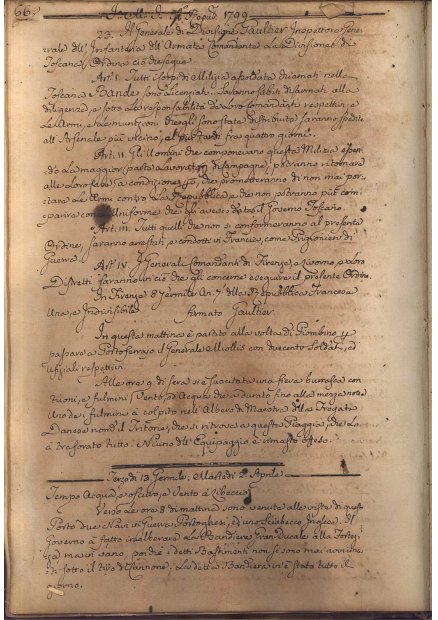 66.
1799
23. Il Generale di Divisione Gaultier Inspettore Gene=
rale dell' Infanteria dell' Armata Comandante La Divisione di
Toscana, Ordina ciò che segue
Art. I. Tutti i Corpi di Milizia assoldata chiamati nella
Toscana Bande sono Licenziati. Saranno subiti disarmati alla
diligenza, e sotto La responsabilità de Loro Comandanti respettivi, e
Le Armi, e Le Munizioni che gli sono state distribuite saranno spedite
all' Arsenale più vicino, al più tardi fra quattro giorni.
Art. II. Gli Uomini che componevano questa Milizia essen=
do La maggior parte Lavoratori di Campagna, potranno ritornare
alle Loro Case a condizione che prometteranno di non mai por=
tare Le Armi contro La Repubblica, e che non potranno più com=
parire con Uniforme che gli aveva dato il Governo Toscano.
Art. III. Tutti quelli che non si conformeranno al presente
Ordine, saranno arrestati, e condotti in Francia, come Prigionieri di
Guerra.
Art. IV. I Generali Comandanti di Firenze, Livorno, e Loro
Distretti faranno in ciò che gli concerne eseguire il presente Ordine.
In Firenze 8 Germile An. 7 della Repubblica Francese
Una, e Indivisibile
Firmato Gaultier
In questa mattina è partito alla volta di Piombino p
passare a Portoferrajo il Generale Miollis con duecento Soldati, ed
Uffiziali respettivi
Alle ore 9 di sera si è suscitata una fiera burrasca con
tuoni, e fulmini, Vento, ed Acqua che à durato fino alla mezza notte
Uno de' fulmini à colpito nell' Albero di Maestra della Fregata
Danese nom.ª il Tritone, che si ritrova a questa Piaggia, che Lo
à traforato tutto. Niuno dell' Equipaggio è rimasto offeso.
Terzodi 13. Germile; Martedì 2. Aprile
Tempo Acqua, e oscuro, e Vento à Libeccio
Verso Le ore 8 di mattina sono venute alle viste di questo
Porto due Navi di Guerra Portoghesi, ed uno Sciabecco Inglese. Il
Governo à fatto inalberare La Bandiera Gran Ducale alla Fortez=
za ma in vano, perchè i detti Bastimenti non si sono mai avvicina=
ti sotto il tiro di Cannone. La detta Bandiera vi è stata tutto il
giorno.